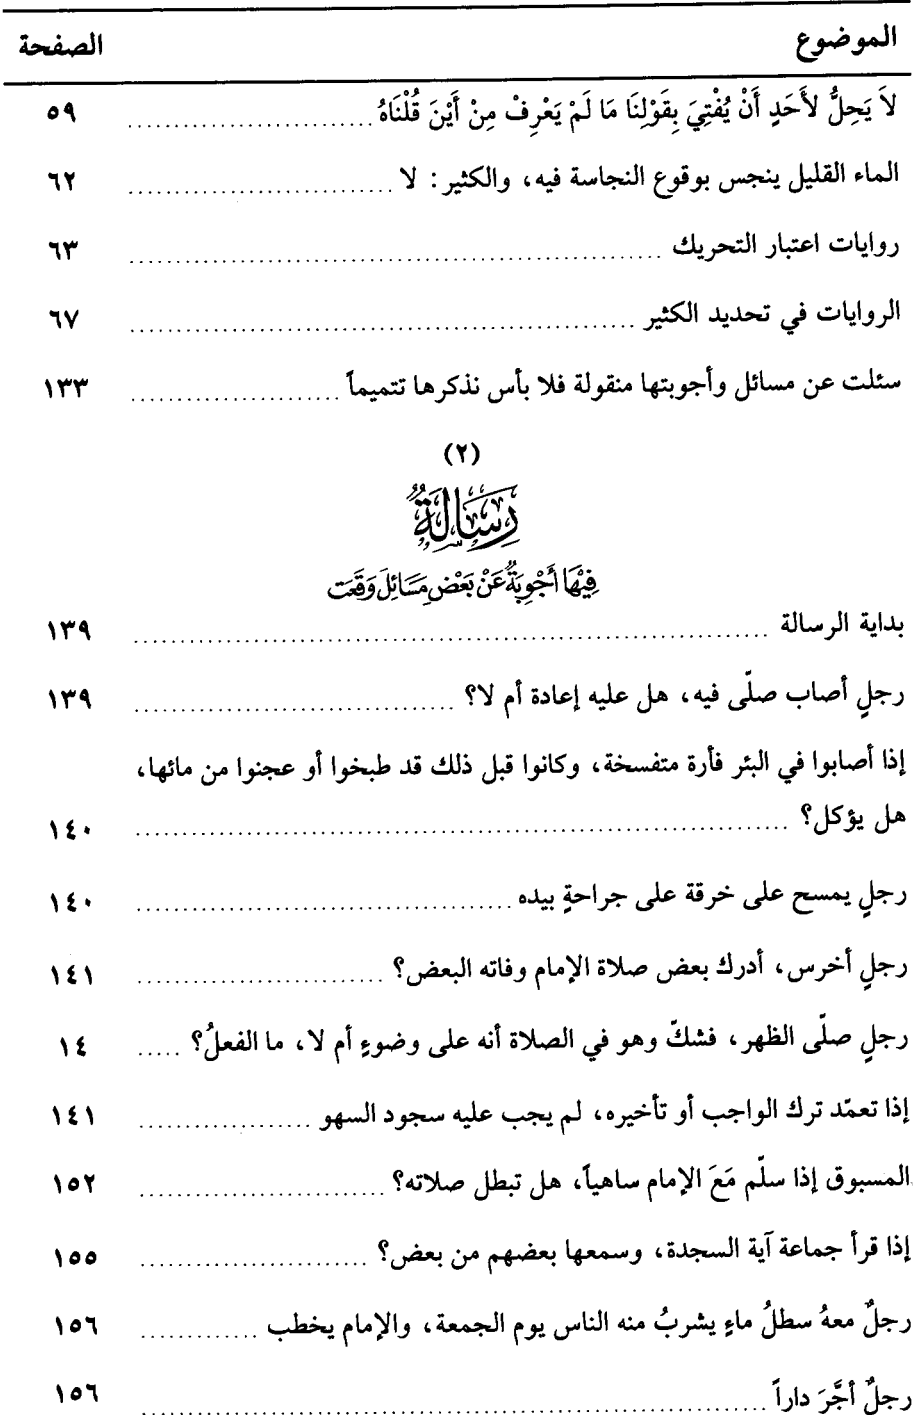 الموضوع الصفحة
لاَ يَحِلُّ لأَحَدٍ أَنْ يُفْتِيَ بِقَوْلِنَا مَا لَمْ يَعْرِفْ مِنْ أَيْنَ قُلْنَاهُ ........................... ٥٩
الماء القليل ينجس بوقوع النجاسة فيه، والكثير: لا ............................. ٦٢
روايات اعتبار التحريك ......................................................... ٦٣
الروايات في تحديد الكثير ...................................................... ٦٧
سئلت عن مسائل وأجوبتها منقولة فلا بأس نذكرها تتميماً ....................... ١٣٣
(٢)
رِسَالَةٌ
فِيْهَا أَجْوِبَةٌ عَنْ بَعْضِ مَسَائِلَ وَقَعَت
بداية الرسالة .................................................................... ١٣٩
رجلٍ أصاب صلّى فيه، هل عليه إعادة أم لا؟ ................................... ١٣٩
إذا أصابوا في البئر فأرة متفسخة، وكانوا قبل ذلك قد طبخوا أو عجنوا من مائها،
هل يؤكل؟ ...................................................................... ١٤٠
رجلٍ يمسح على خرقة على جراحةٍ بيده ........................................ ١٤٠
رجلٍ أخرس، أدرك بعض صلاة الإمام وفاته البعض؟ ........................... ١٤١
رجلٍ صلّى الظهر، فشكّ وهو في الصلاة أنه على وضوءٍ أم لا، ما الفعلُ؟ ..... ١٤
إذا تعمّد ترك الواجب أو تأخيره، لم يجب عليه سجود السهو ................... ١٤١
المسبوق إذا سلّم مَعَ الإمام ساهياً، هل تبطل صلاته؟ .......................... ١٥٢
إذا قرأ جماعة آية السجدة، وسمعها بعضهم من بعض؟ ......................... ١٥٥
رجلٌ معهُ سطلُ ماءٍ يشربُ منه الناس يوم الجمعة، والإمام يخطب ............. ١٥٦
رجلٌ أجَّرَ داراً .................................................................. ١٥٦